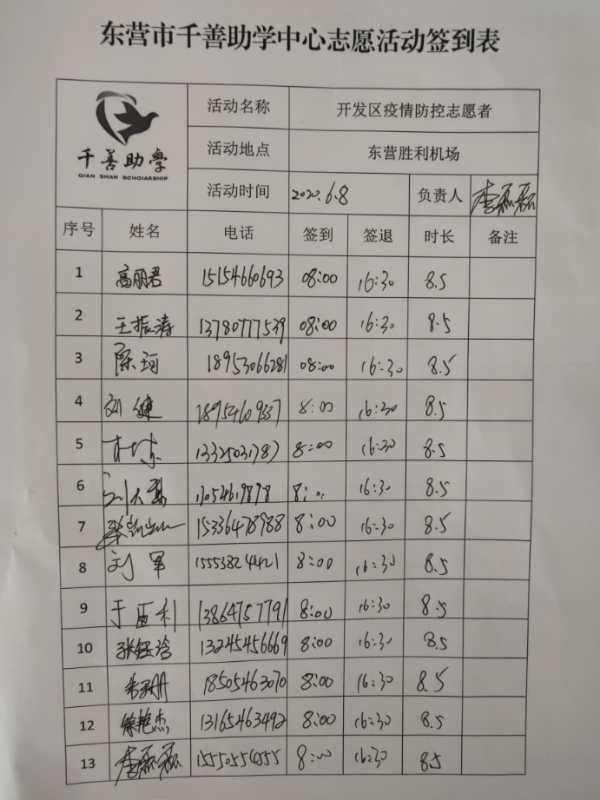 东营市千善助学中心志愿活动签到表
千善助学
QIAN SHAN SCHOLARSHIP
活动名称 开发区疫情防控志愿者
活动地点 东营胜利机场
活动时间 2022.6.8 负责人 李磊磊
序号 姓名 电话 签到 签退 时长 备注
1 高丽君 15154660693 08:00 16:30 8.5
2 王振涛 13780777539 08:00 16:30 8.5
3 陈珂 18953066281 08:00 16:30 8.5
4 刘健 18954609337 8:00 16:30 8.5
5 13325031787 8:00 16:30 8.5
6 16:30 8.5
7 15336478988 8:00 16:30 8.5
8 刘军 15553824421 8:00 16:30 8.5
9 13864757791 8:00 16:30 8.5
10 13245456669 8:00 16:30 8.5
11 18505463070 8:00 16:30 8.5
12 徐艳杰 13165463492 8:00 16:30 8.5
13 李磊磊 8:00 16:30 8.5